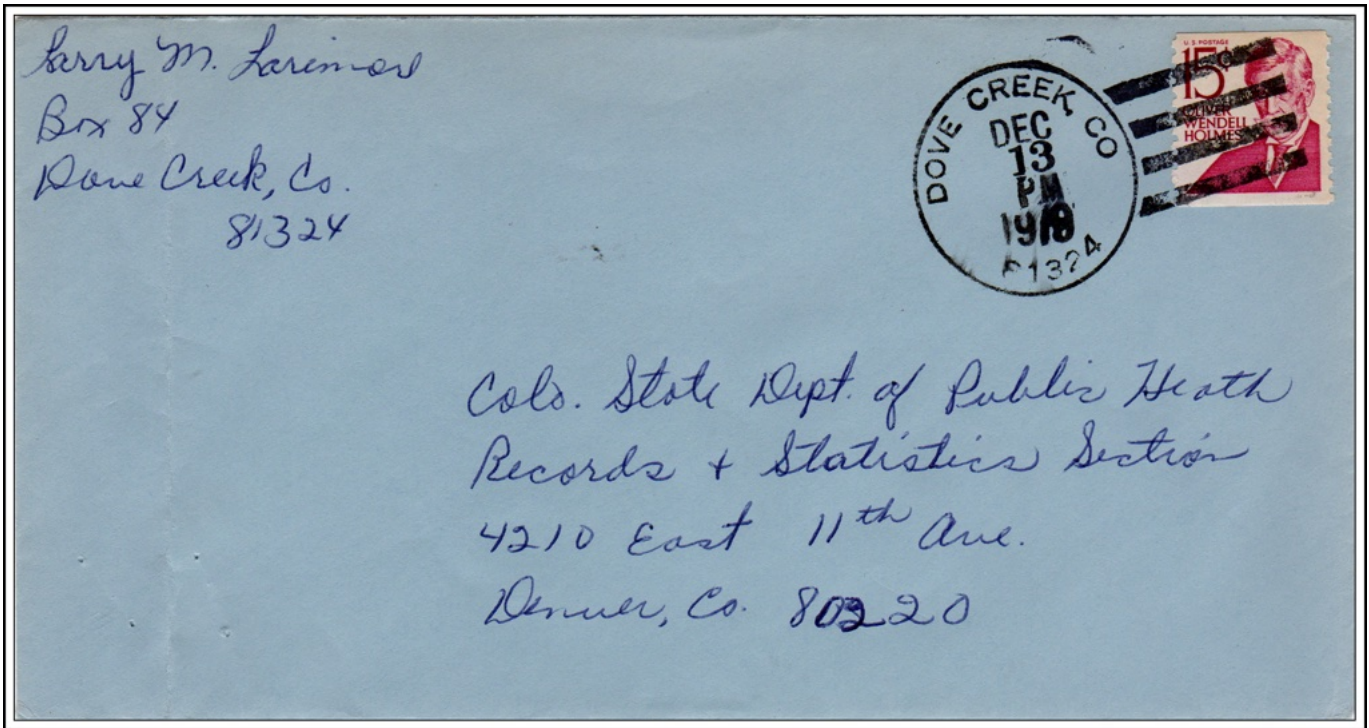 Larry M. Larimore
Box 84
Dove Creek, Co.
81324
DOVE CREEK, CO
DEC
13
PM
81324
U.S. POSTAGE
15¢
OLIVER
WENDELL
HOLMES
Colo. State Dept. of Public Heath
Records + Statistics Section
4210 East 11th Ave.
Denver, Co. 80220